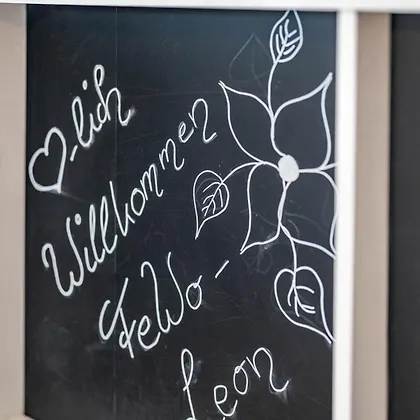 ♡-lich
Willkommen
FeWo-
Leon